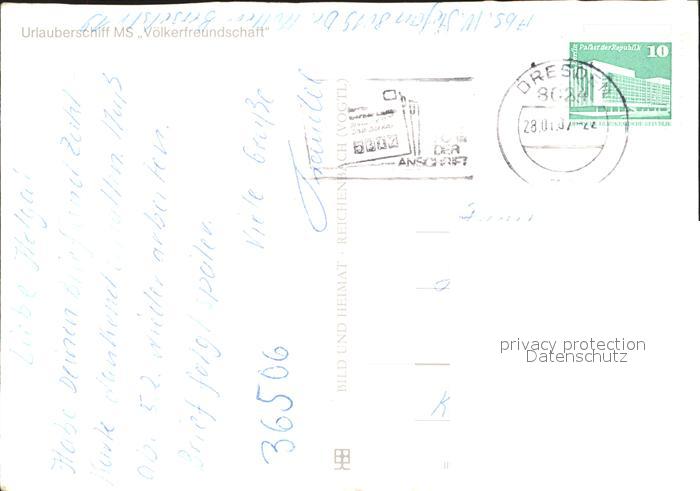 Urlauberschiff MS „Völkerfreundschaft"
Abs. W.
Liebe Helga!
Habe Deinen Brief und
Karte dankend erhalten. Muß
ab 5.2. wieder arbeiten.
Brief folgt später.
Viele Grüße
36506
BILD UND HEIMAT · REICHENBACH (VOGTL)
DER
ANSCHRIFT
DRESDEN
8024
28.01.87-22
Palast der Republik
10
K
privacy protection
Datenschutz